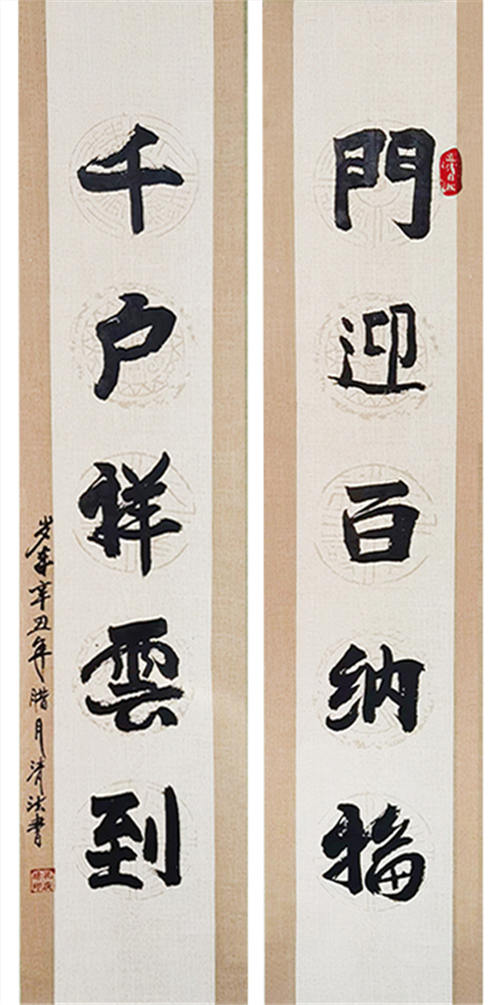 門迎百纳福
千户祥雲到
岁在辛丑年腊月清法書